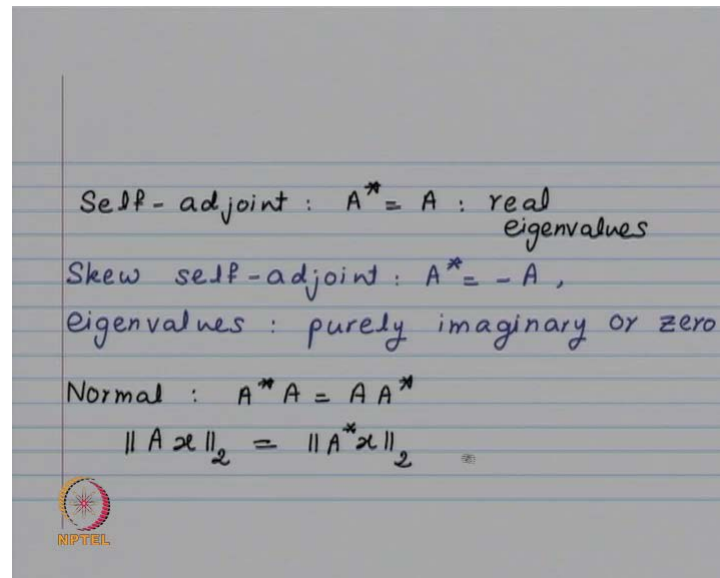 Self-adjoint : A* = A : real
eigenvalues
Skew self-adjoint : A* = -A ,
eigenvalues : purely imaginary or zero
Normal : A* A = A A*
|| A x ||₂ = || A* x ||₂
NPTEL